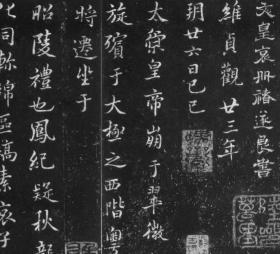 文皇哀冊褚遂良書
維貞觀廿三年
玥廿六日己巳
太宗皇帝崩于翠微
旋殯于大極之西階粵
將遷坐于
昭陵禮也鳳紀疑秋龍
化同軫綿區縞素哀子